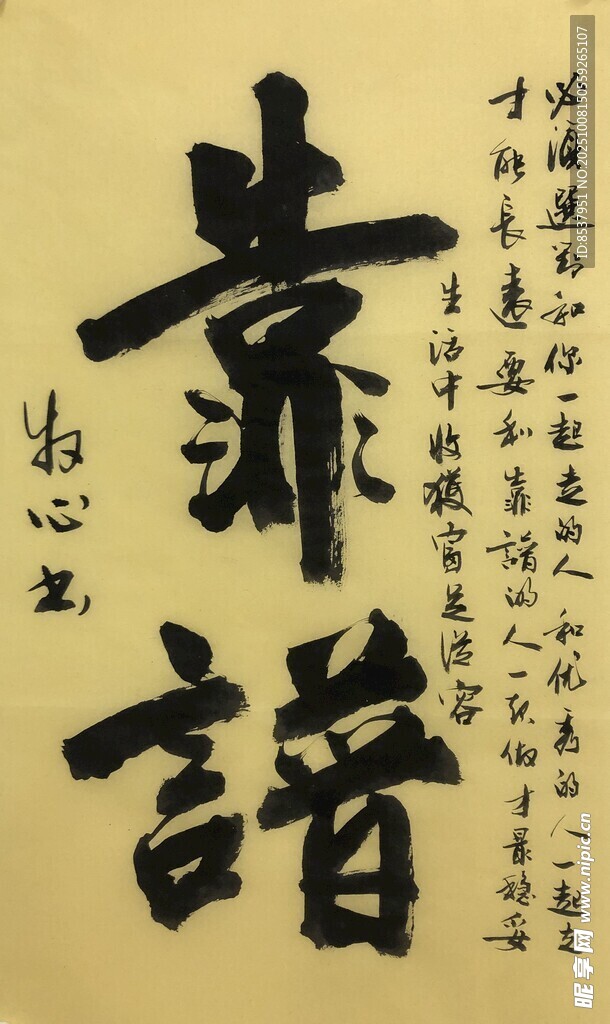 靠譜
必須選對和你一起走的人 和优秀的人一起走
才能長遠 要和靠譜的人一起做才最穩妥
生活中收獲富足從容
牧心书
ID:8537951 NO:20251008150559265107
昵享网 www.nipic.cn